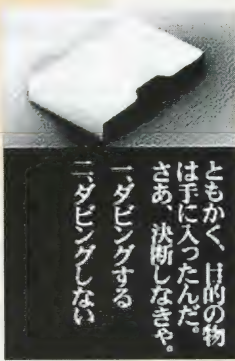 ともかく、目的の物
は手に入ったんだ。
さあ、決断しなきゃ。
一、ダビングする
二、ダビングしない